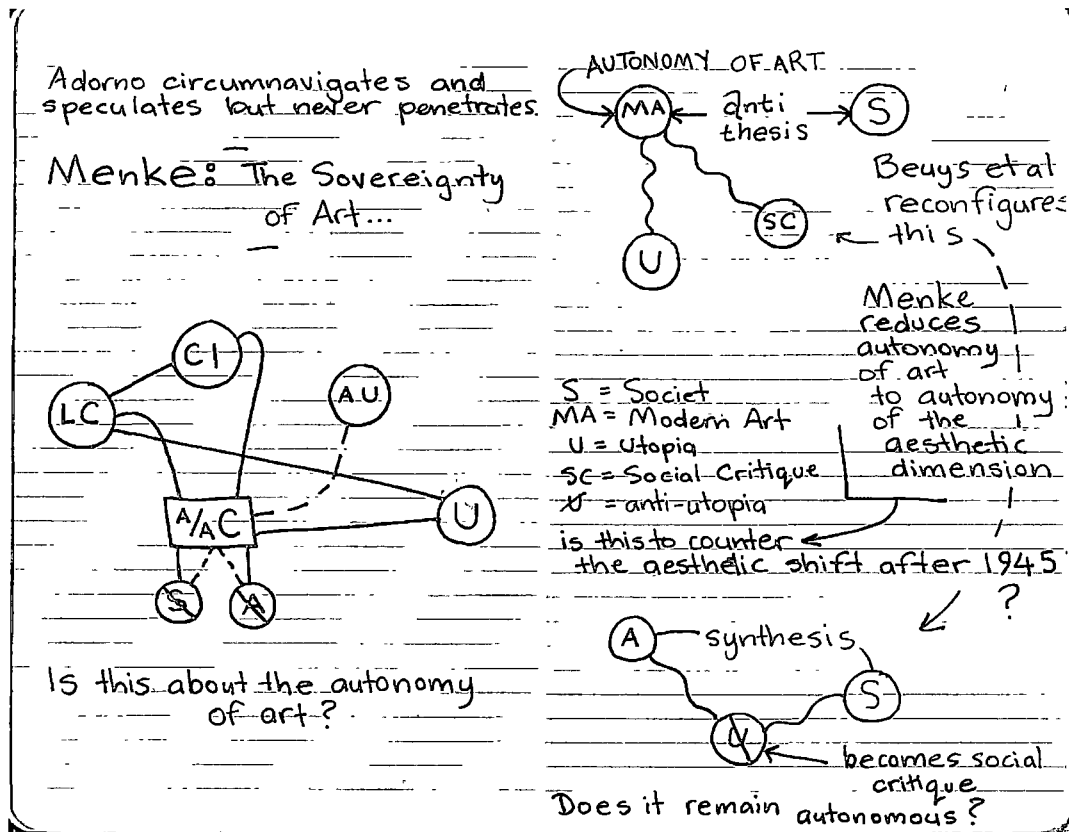 Adorno circumnavigates and
speculates but never penetrates.
Menke: The Sovereignty
of Art...
CI
LC
AU
A/AC
U
S
A
Is this about the autonomy
of art?
AUTONOMY OF ART
MA
anti
thesis
S
SC
U
Beuys et al
reconfigures
this
Menke
reduces
autonomy
of art
to autonomy
of the
aesthetic
dimension
S = Societ
MA = Modern Art
U = Utopia
SC = Social Critique
U = anti-utopia
is this to counter
the aesthetic shift after 1945
?
A
synthesis
S
U
becomes social
critique
Does it remain autonomous?